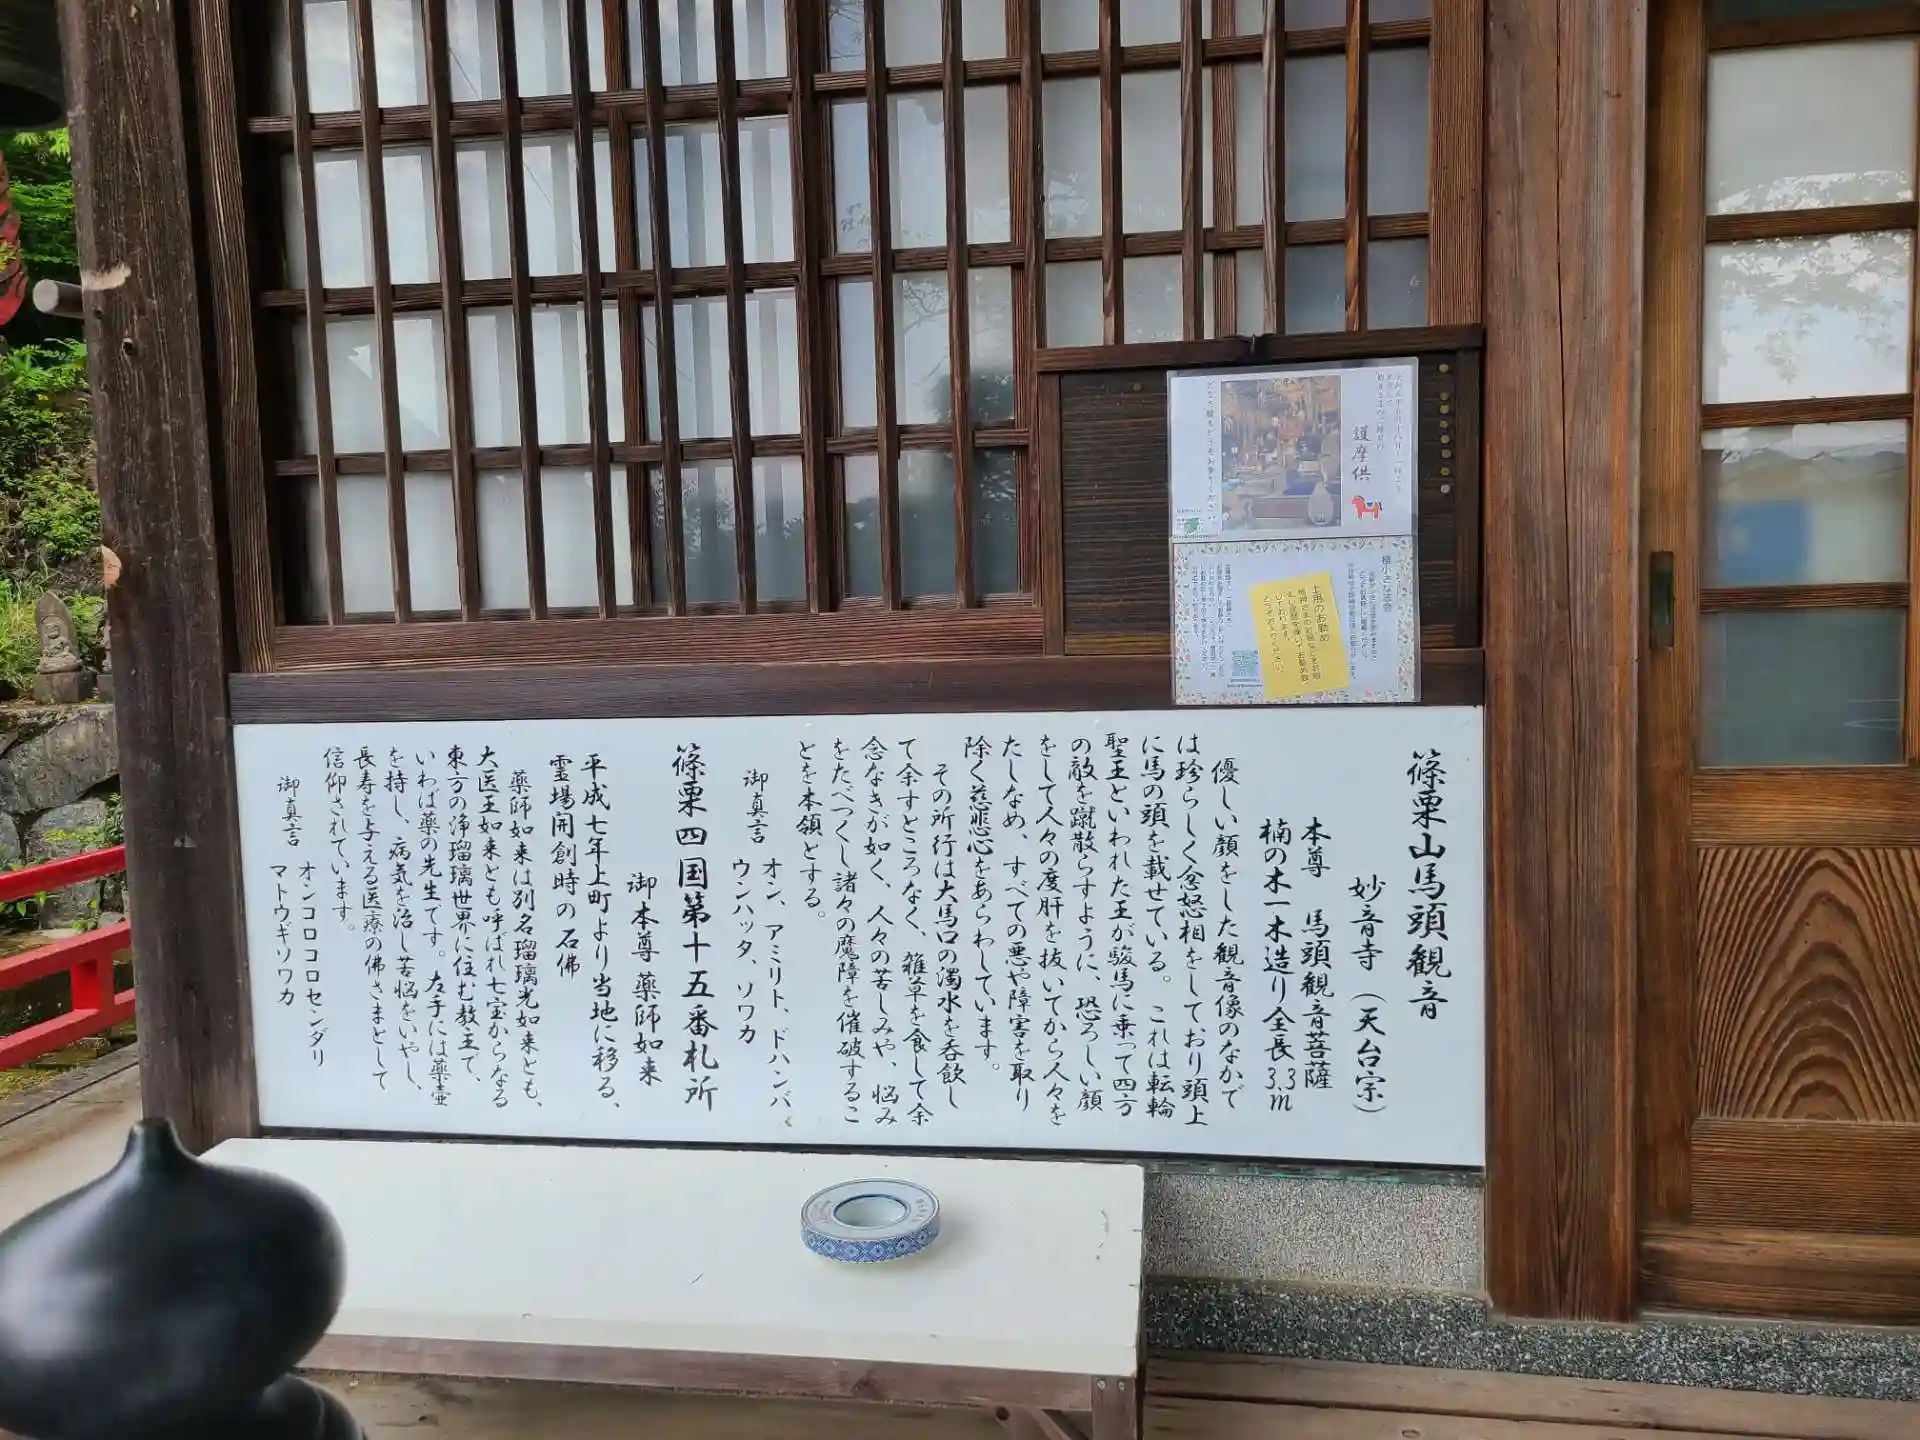 篠栗山馬頭観音
妙音寺（天台宗）
本尊　馬頭観音菩薩
楠の木一木造り全長3.3m
優しい顔をした観音像のなかで
は珍らしく念怒相をしており頭上
に馬の頭を載せている。これは転輪
聖王といわれた王が駿馬に乗って四方
の敵を蹴散らすように、恐ろしい顔
をして人々の度肝を抜いてから人々を
たしなめ、すべての悪や障害を取り
除く慈悲心をあらわしています。
その所行は大馬口の濁水を呑飲し
て余すところなく、雑草を食して余
念なきが如く、人々の苦しみや、悩み
をたべつくし諸々の魔障を催破するこ
とを本領とする。
御真言　オン、アミリト、ドハンバ
ウンハッタ、ソワカ
篠栗四国第十五番札所
御本尊 薬師如来
平成七年上町より当地に移る、
霊場開創時の石佛
薬師如来は別名瑠璃光如来とも、
大医王如来とも呼ばれ七宝からなる
東方の浄瑠璃世界に住む教主で、
いわば薬の先生です。左手には薬壷
を持し、病気を治し苦悩をいやし、
長寿を与える医療の佛さまとして
信仰されています。
御真言　オンコロコロセンダリ
マトウギソワカ
護摩供
どなた様もどうぞお参りください
極小さな法会
土用のお勤め
しております。
どうぞお入りください。